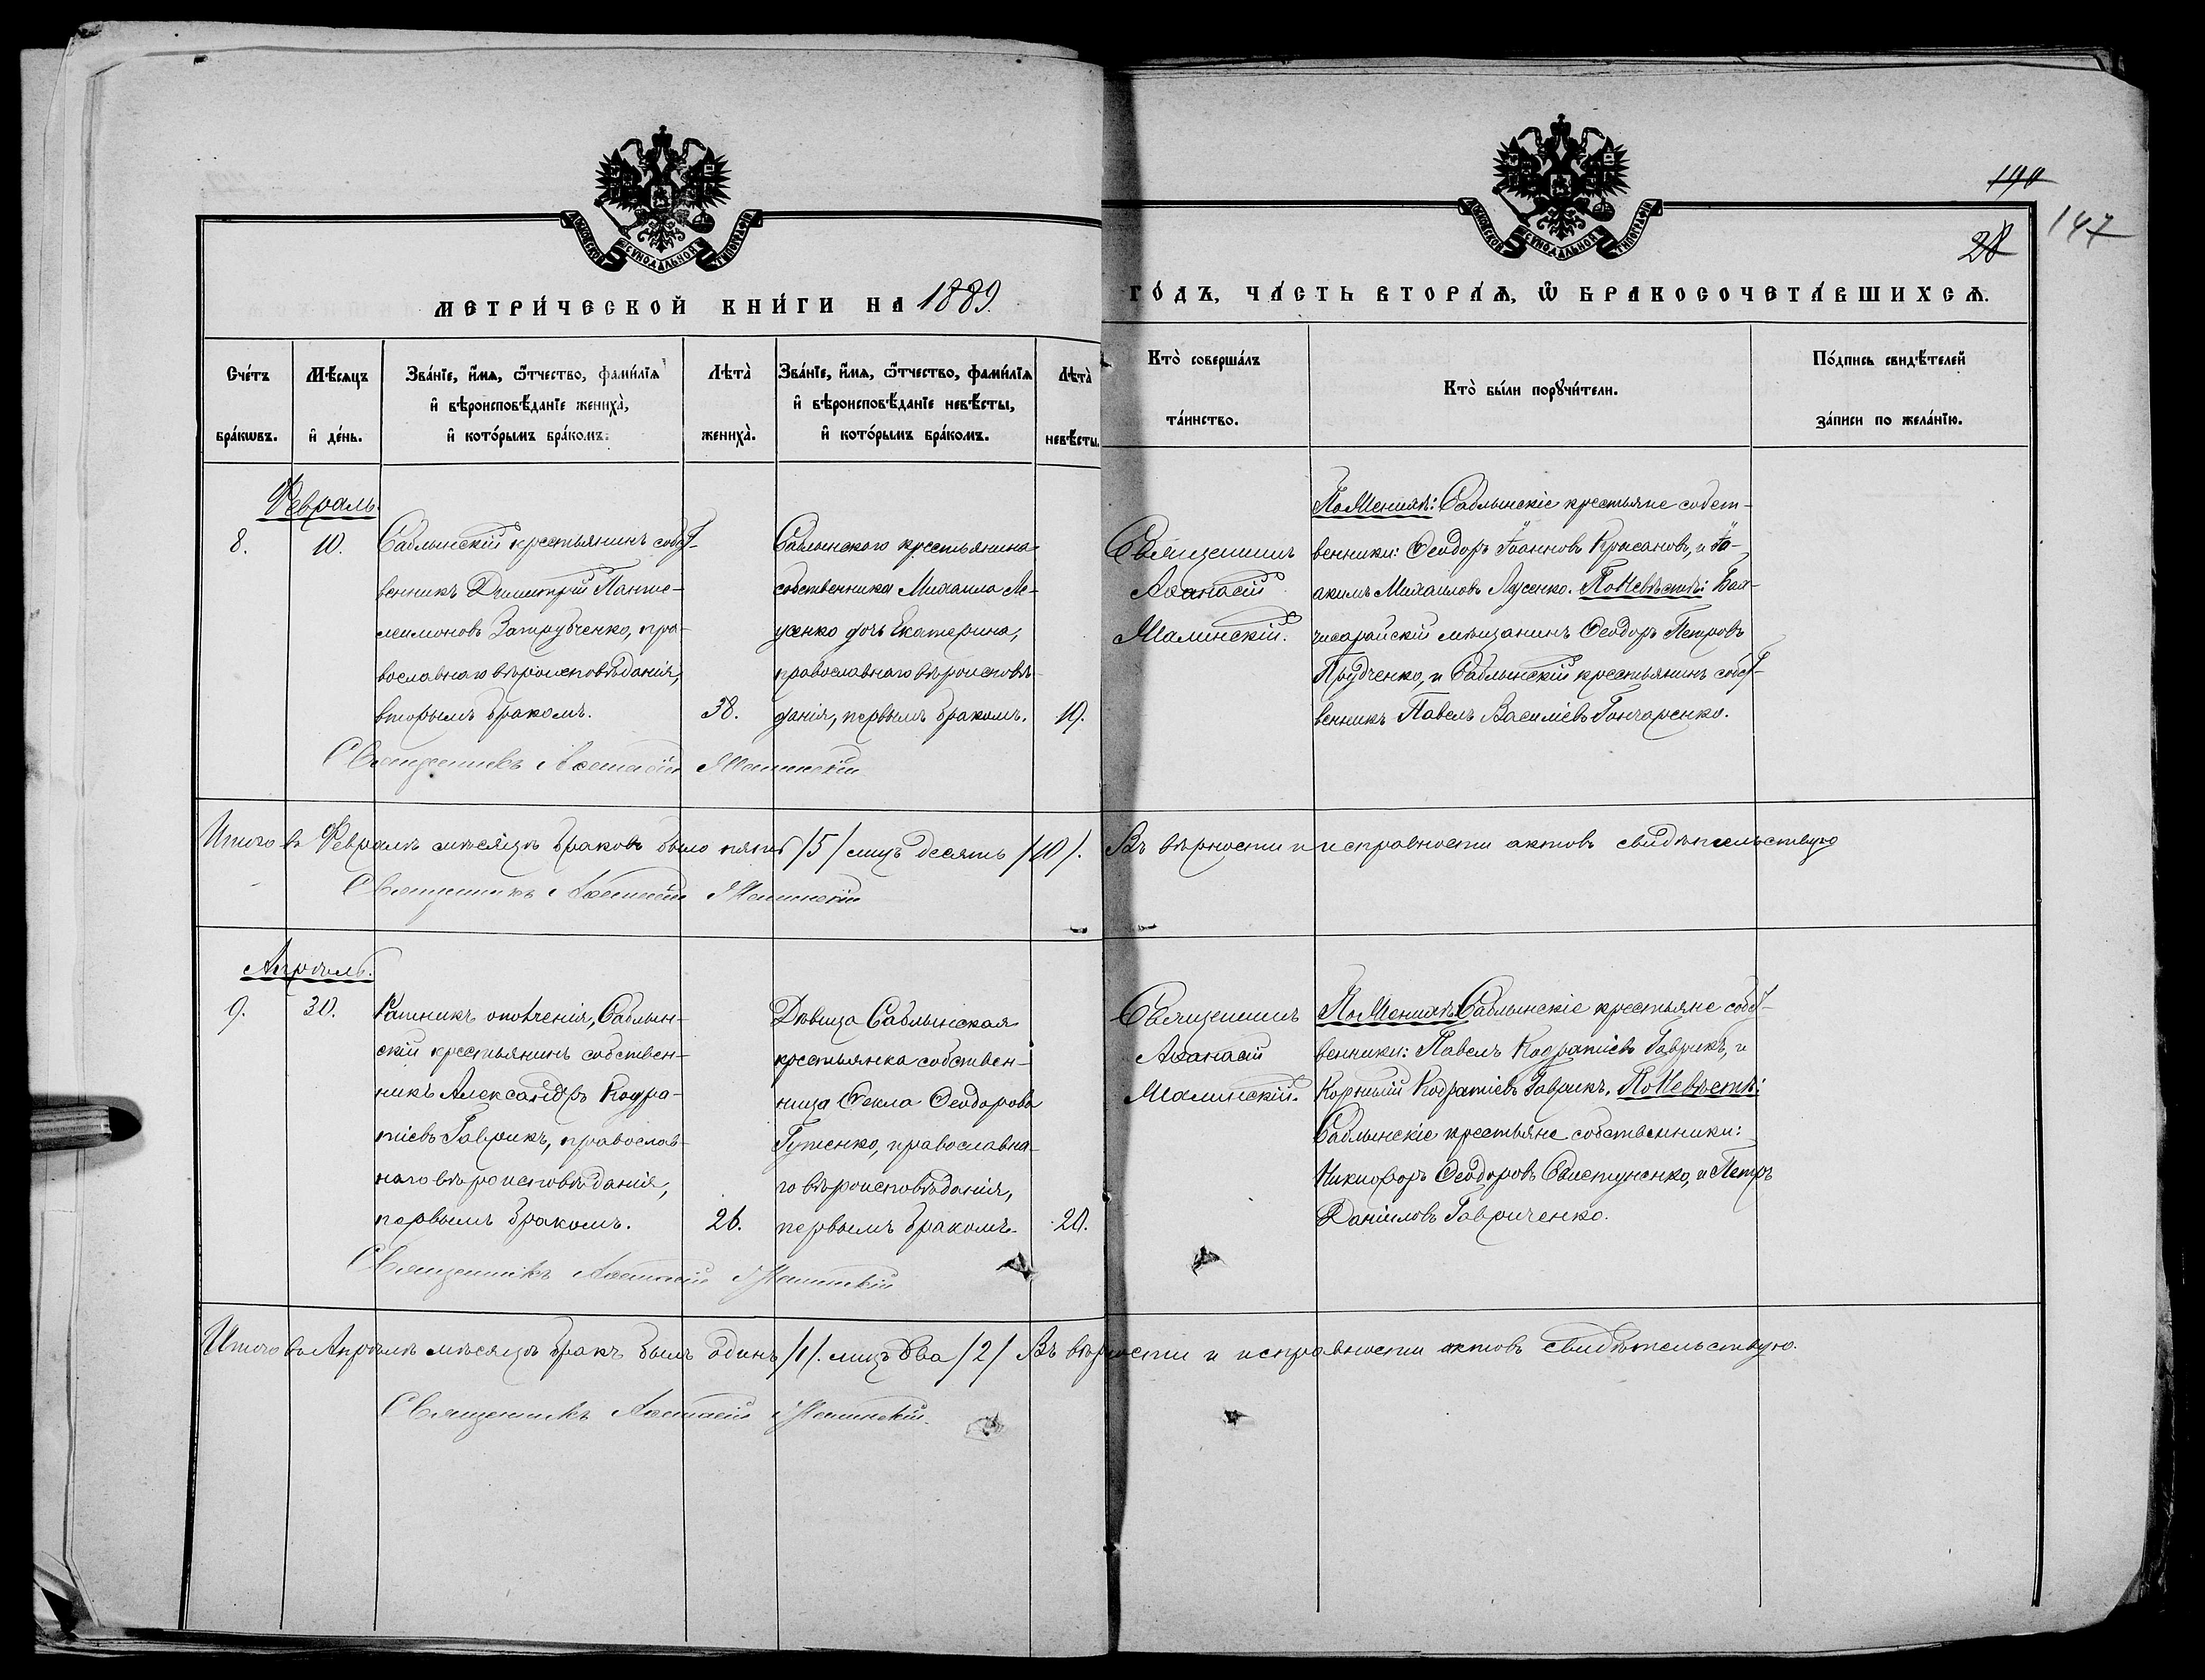 МОСКОВСКОЙ СУНОДАЛЬНОЙ ТИПОГРАФІИ
МОСКОВСКОЙ СУНОДАЛЬНОЙ ТИПОГРАФІИ
190
28
147
МЕТРИ́ЧЕСКОЙ КНИ́ГИ НА 1889.
ГО́ДЪ, ЧА́СТЬ ВТОРА́Ѧ, Ѽ БРАКОСОЧЕТА́ВШИХСѦ.
Сче́тъ бра́кѡвъ.
Мѣ́сяцъ и҆ де́нь.
Зва́нїе, и҆́мѧ, ѻ҆́тчество, фами́лїѧ
и҆ вѣроисповѣ́данїе жениха̀,
и҆ кото́рымъ бра́комъ.
Лѣта̀ жениха̀.
Зва́нїе, и҆́мѧ, ѻ҆́тчество, фами́лїѧ
и҆ вѣроисповѣ́данїе невѣ́сты,
и҆ кото́рымъ бра́комъ.
Лѣта̀ невѣ́сты.
Кто̀ соверша́лъ
та́инство.
Кто̀ бы́ли порꙋчи́тели.
По́дпись свидѣ́телей
за́писи по жела́нїю.
Февраль.
8.
10.
Саблынскій крестьянинъ собст-
венникъ Димитрій Панте-
леимоновъ Затрубченко, пра-
вославнаго вѣроисповѣданія,
вторымъ бракомъ.
38.
Саблынскаго крестьянина
собственника Михаила Ля-
усенко дочь Екатерина,
православнаго вѣроисповѣ-
данія, первымъ бракомъ.
19.
Священникъ
Аѳанасій
Малинскій.
По Женихѣ: Саблынскіе крестьяне собст-
венники: Ѳеодоръ Іоанновъ Красановъ, и Іо-
акимъ Михаиловъ Лусенко. По Невѣстѣ: Бах-
чисарайскій мѣщанинъ Ѳеодоръ Петровъ
Прудченко, и Саблынскій крестьянинъ собст-
венникъ Павелъ Василіевъ Гончаренко.
Священникъ Аѳанасій Малинскій
Итого въ Февралѣ мѣсяцѣ браковъ было пять /5/ лицъ десять /10/. Въ вѣрности и исправности актовъ свидѣтельствую
Священникъ Аѳанасій Малинскій
Апрѣль.
9.
30.
Ратникъ ополченія, Саблын-
скій крестьянинъ собствен-
никъ Александръ Кодра-
тіевъ Гаврикъ, православ-
наго вѣроисповѣданія,
первымъ бракомъ.
26.
Дѣвица Саблынская
крестьянка собствен-
ница Ѳекла Ѳеодорова
Гутенко, православна-
го вѣроисповѣданія,
первымъ бракомъ.
20.
Священникъ
Аѳанасій
Малинскій.
По Женихѣ: Саблынскіе крестьяне собст-
венники: Павелъ Кодратіевъ Гаврикъ, и
Корнилій Кодратіевъ Гаврикъ. По Невѣстѣ:
Саблынскіе крестьяне собственники:
Никифоръ Ѳеодоровъ Свистуненко, и Петръ
Даніиловъ Гавриченко.
Священникъ Аѳанасій Малинскій
Итого въ Апрѣлѣ мѣсяцѣ бракъ былъ одинъ /1/. лицъ два /2/ Въ вѣрности и исправности актовъ свидѣтельствую.
Священникъ Аѳанасій Малинскій.